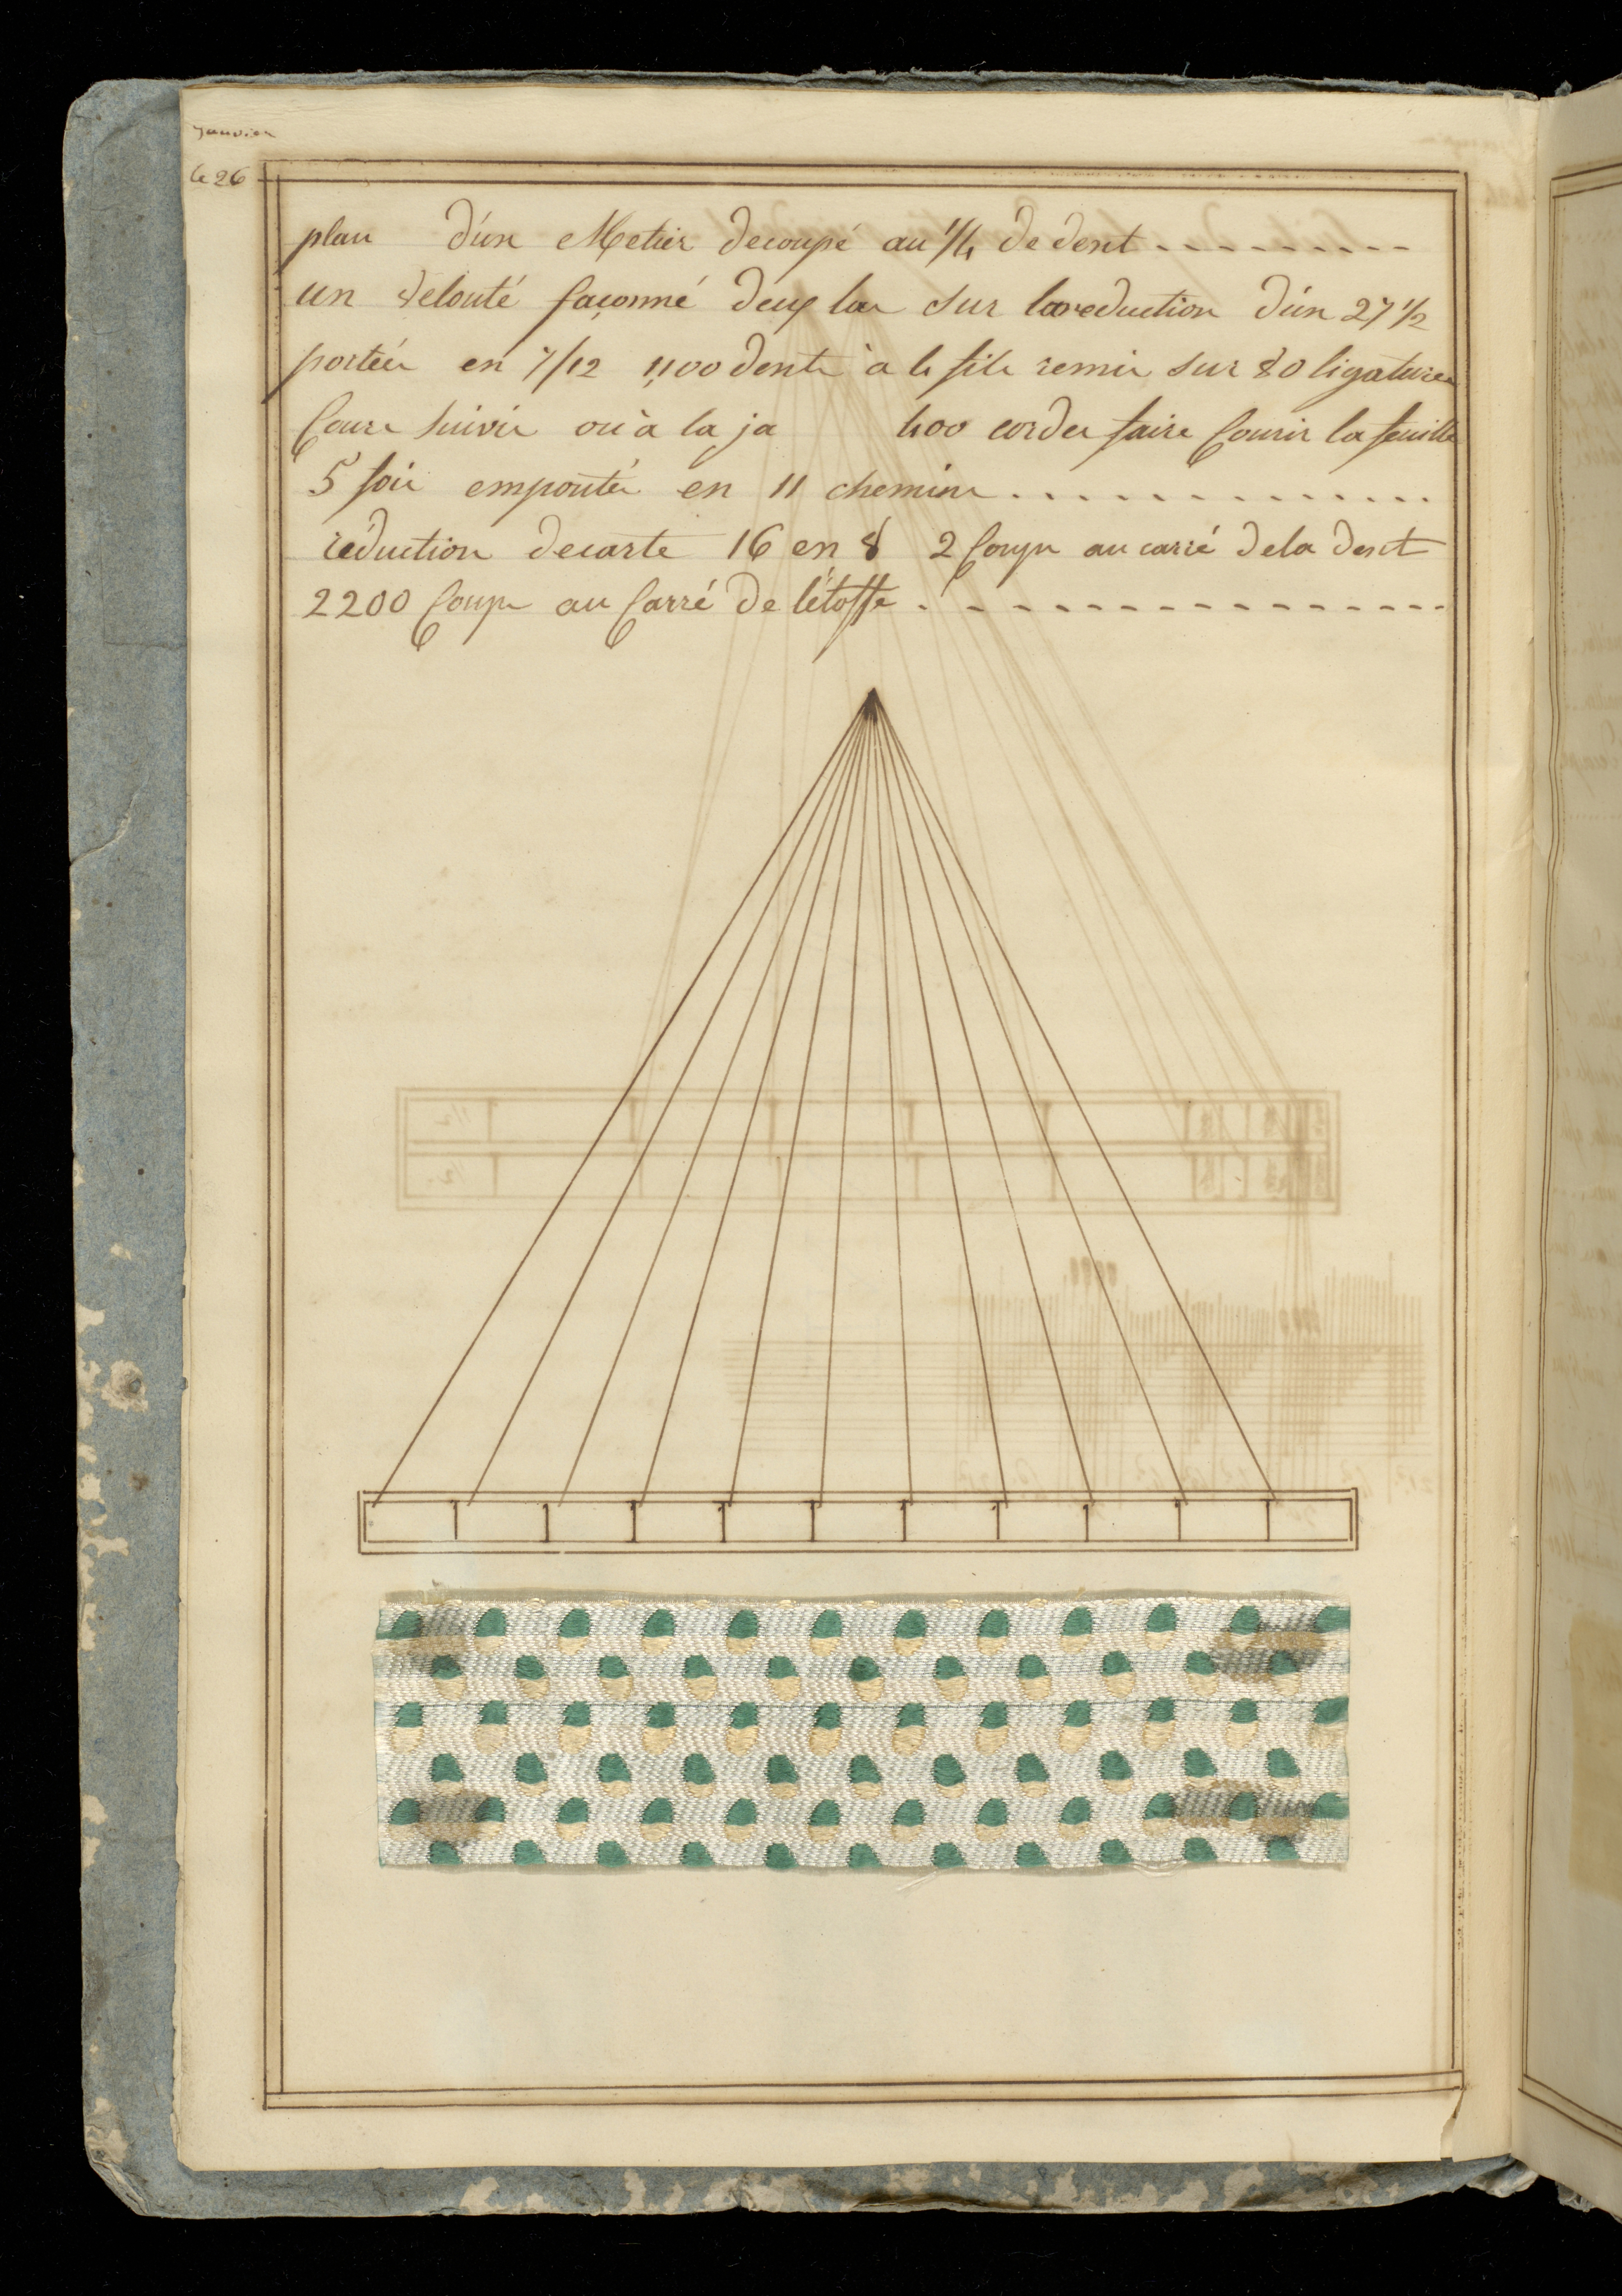 Janvier
le 26
plan d'un Metier decoupé au 1/4 de dent
un velouté façonné deux las sur la reduction d'un 27 1/2
portées en 7/12 1100 dents à 4 fils remis sur 80 ligatures
Cours suivis ou à la ja 400 cordes faire Courir la feuille
5 fois empouté en 11 chemins
réduction decarte 16 en 8 2 Coups au carré de la dent
2200 Coups au Carré de l'étoffe